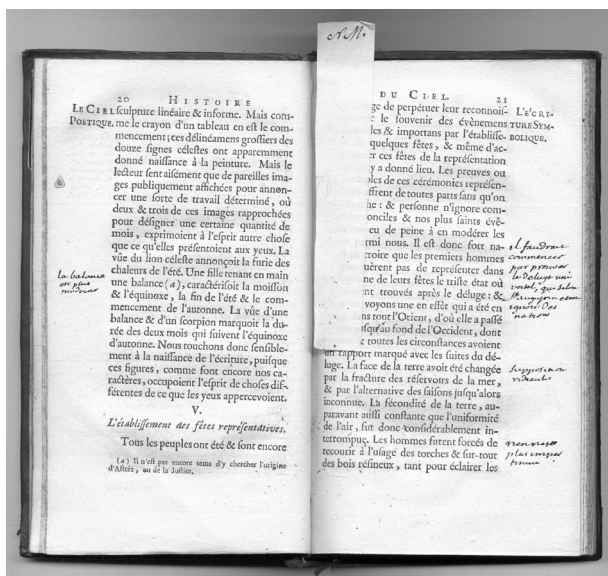 20 HISTOIRE
LE CIEL
POETIQUE.
sculpture linéaire & informe. Mais com-
me le crayon d'un tableau en est le com-
mencement ; ces délinéamens grossiers des
douze signes célestes ont apparemment
donné naissance à la peinture. Mais le
lecteur sent aisément que de pareilles ima-
ges publiquement affichées pour annon-
cer une sorte de travail déterminé, où
deux & trois de ces images rapprochées
pour désigner une certaine quantité de
mois, exprimoient à l'esprit autre chose
que ce qu'elles présentoient aux yeux. La
vûe du lion céleste annonçoit la furie des
chaleurs de l'été. Une fille tenant en main
une balance (a), caractérisoit la moisson
& l'équinoxe, la fin de l'été & le com-
mencement de l'automne. La vûe d'une
balance & d'un scorpion marquoit la du-
rée des deux mois qui suivent l'équinoxe
d'automne. Nous touchons donc sensible-
ment à la naissance de l'écriture, puisque
ces figures, comme font encore nos ca-
ractères, occupoient l'esprit de choses dif-
férentes de ce que les yeux appercevoient.
V.
L'établissement des fêtes représentatives.
Tous les peuples ont été & sont encore
(a) Il n'est pas encore tems d'y chercher l'origine
d'Astrée, ou de la Justice.
la balance
est plus
moderne
N.M.
DU CIEL. 21
L'ECRI-
TURE SYM-
BOLIQUE.
ge de perpétuer leur reconnois-
le souvenir des évènemens
les & importans par l'établisse-
quelques fêtes, & même d'ac-
er ces fêtes de la représentation
y a donné lieu. Les preuves ou
ples de ces cérémonies représen-
ffrent de toutes parts sans qu'on
he : & personne n'ignore com-
onciles & nos plus saints évê-
eu de peine à en modérer les
rmi nous. Il est donc fort na-
roire que les premiers hommes
uèrent pas de représenter dans
ne de leurs fêtes le triste état où
nt trouvés après le déluge : &
voyons une en effet qui a été en
ns tout l'Orient, d'où elle a passé
sqn'au fond de l'Occident, dont
toutes les circonstances avoient
un rapport marqué avec les suites du dé-
luge. La face de la terre avoit été changée
par la fracture des réservoirs de la mer,
& par l'alternative des saisons jusqu'alors
inconnue. La fécondité de la terre, au-
paravant aussi constante que l'uniformité
de l'air, fut donc considérablement in-
terrompue. Les hommes furent forcés de
recourir à l'usage des torches & sur-tout
des bois résineux, tant pour éclairer les
il faudrait
commencer
par prouver
le deluge uni
versel, qui
de
supposition
ridicule
plus